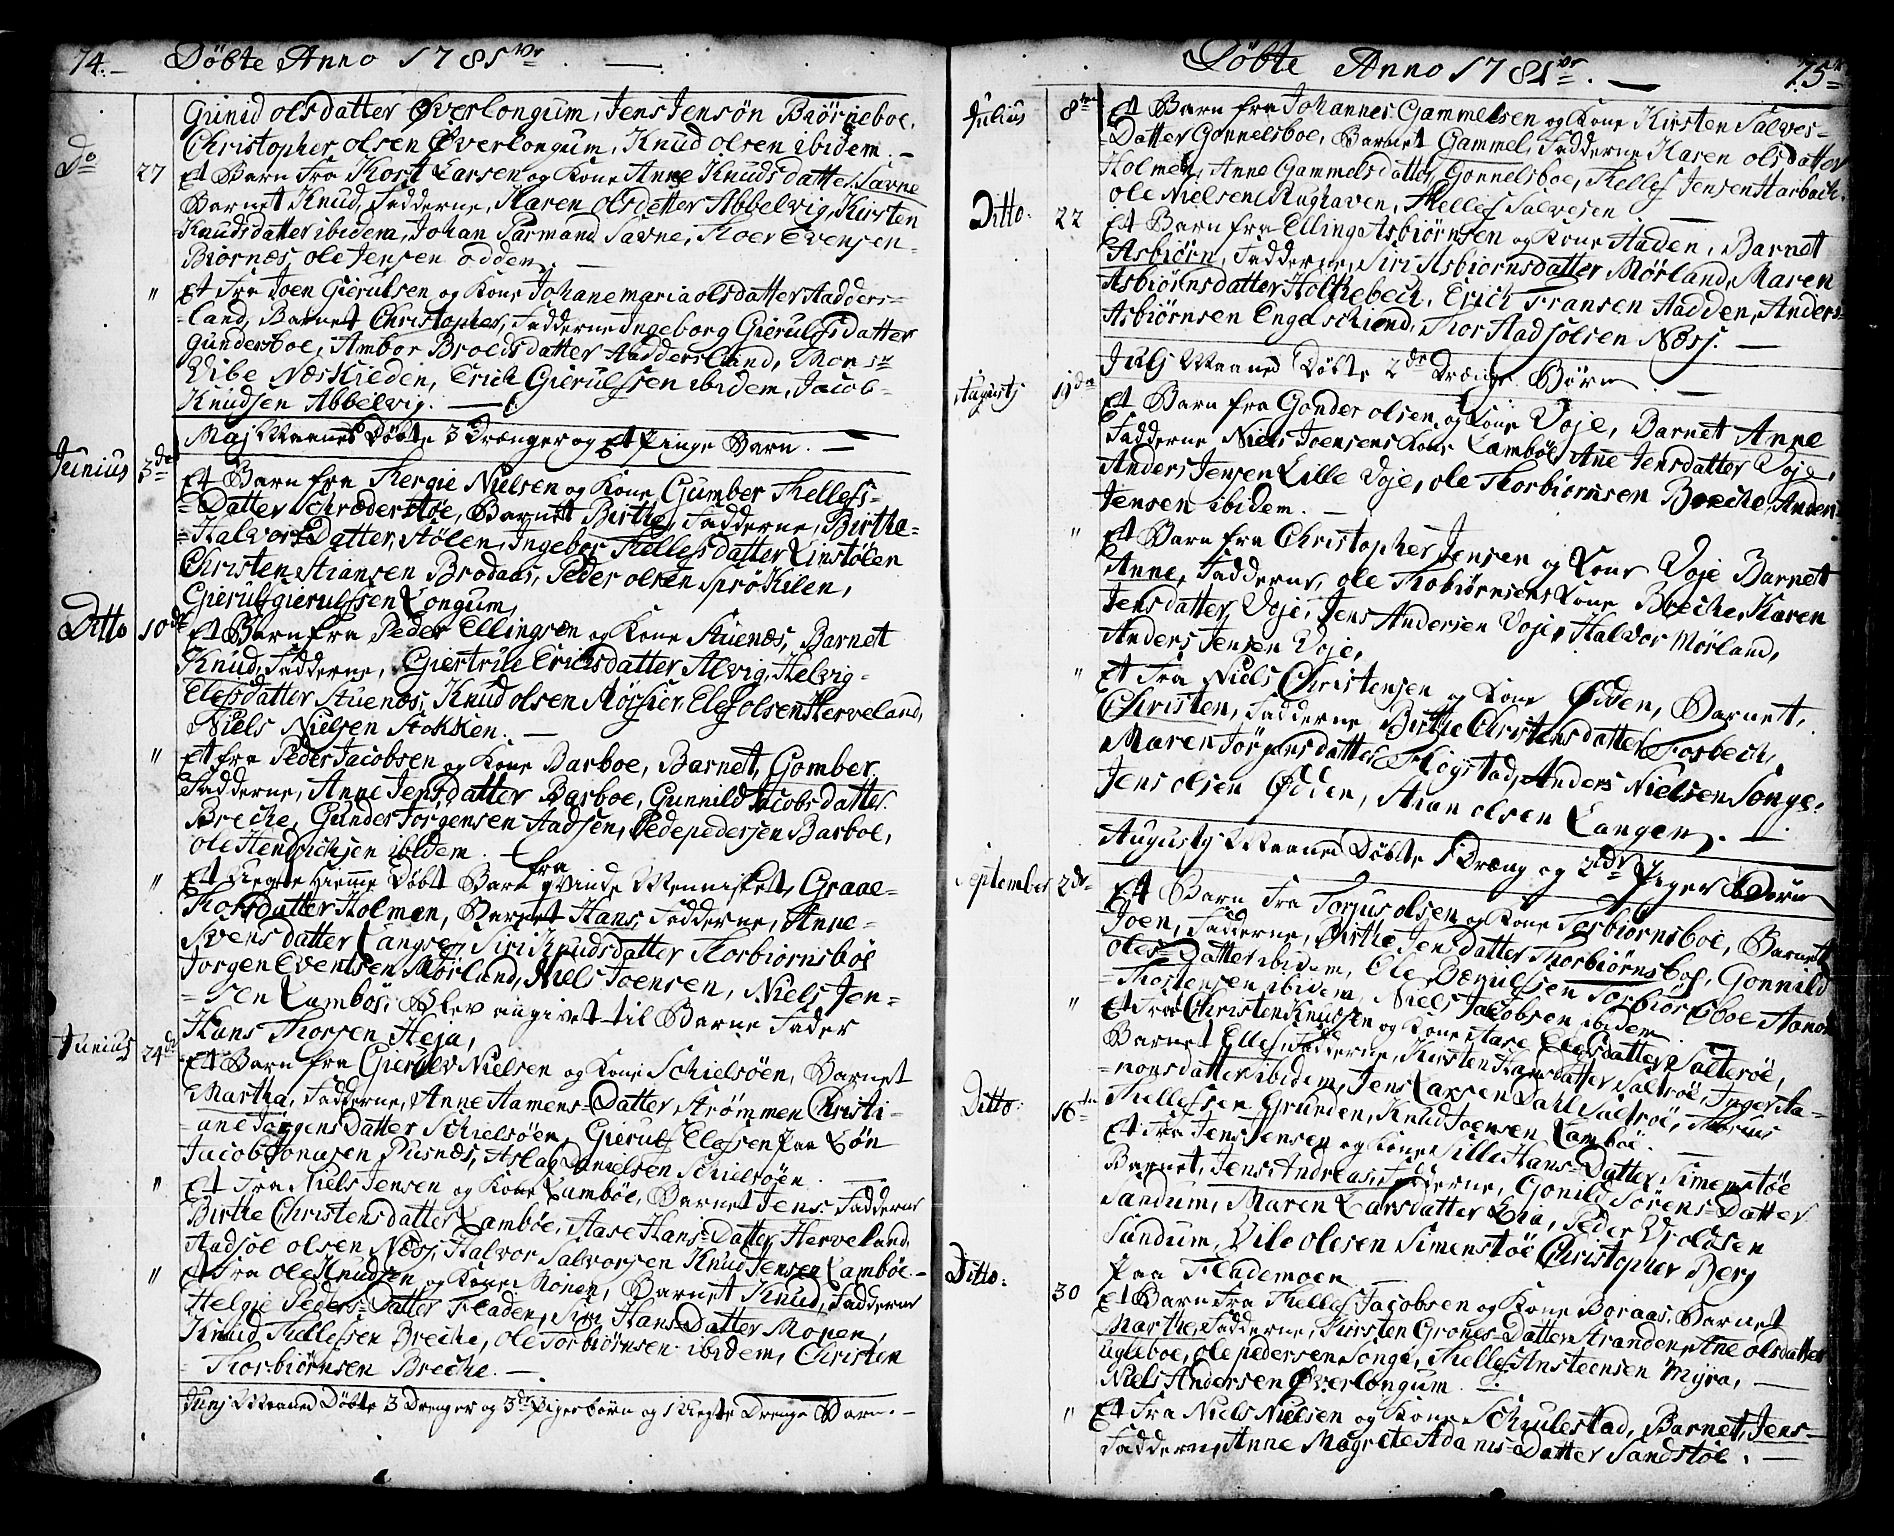 74.- Døbte Anno 1781 ve.
Gunid olsdatter Øverlongum, Jens Jensøn Biørneboe,
Christopher olsen Øverlongum, Knud olsen ibidem. -
Do 27 Et Barn fra Kort Larsen og Kone Anne Knudsdatter Savne
Barnet Knud, Fadderne, Karen olsdatter Abbelvig, Kirsten
Knudsdatter ibidem, Johan Parmand Savne, Thoer Evensen-
Biørnæs, ole Jensen odden. -
" Et Fra Joen Gierulsen og Kone Johanemaria olsdatter Aadders-
-land, Barnet Christopher, Fadderne Ingeborg Gierulfsdatter
Gundersboe, Ambor Broldsdatter Aaddersland, Monsr
Vibe Næskilden, Erich Gierulssen ibidem, Jacob-
Knudsen Abbelvig. -
Maj Maaned Døbte 3 Drænger og Et Pinge Barn. -
Junius 3de Et Barn fra Thergie Nielsen og Kone Gumber Thellefs-
-Datter Schrøderstøe, Barnet Birthe, Fadderne, Birthe-
-Halvors Datter, Stølen, Ingebor Thellefsdatter Linstølen
Christen Stiansen Brodaas, Peder olsen Sprøkilen,
Gieruls gierulssen Longum,
Ditto 10de Et Barn fra Peder Ellingsen og Kone Stuenæs, Barnet
Knud, Fadderne, Giertrue Erichsdatter Alvig, Helvig-
Elefsdatter Stuenæs, Knud olsen Røssier, Elef olsen Herveland,
Niels Nielsen Stokken. -
" Et fra Peder Jacobsen og Kone Barboe, Barnet, Gomber,
Fadderne, Anne Jensdatter Barboe, Gunnild Jacobsdatter
Breche, Gunder Jorgensen Aadsen, Pedepedersen Barboe,
ole Hendrichsen ibidem. -
" Et Uegte Hiemme Døbt Barn fra qvinde Mennisket, Graae-
Thorsdatter Holmen, Barnet Hans, Fadderne, Anne-
Svensdatter Langsev, Siri Knudsdatter Thorbiornsbøe
Jorgen Eventsen Mørland, Niels Joensen, Niels Jen-
-sen Lambøe, Blev angivet til Barne Fader
Hans Thorsen Heja,
Junius 24de Et Barn fra Gierulv Nielsen og Kone Schielsøen, Barnet
Martha, Fadderne, Anne Hamens-Datter Strømmen Christi-
-ane Jørgens Datter Schielsøen, Gierulf Elefsen paa Løn
Jacob Jonasen Pusnæs, Aslag Danielsen Schielsøen. -
" Et Fra Niels Jensen og Kone Lambøe, Barnet Jens, Fadderne
Birthe Christensdatter Lambøe, Aase Hans-Datter, Herveland,
Aadsøl olsen Næss, Halvor Salvorsen Knud Jensen Lambøe. -
" Et Fra Ole Knudsen og Kone Monen, Barnet Knud, Fadderne
Helgie Peders-Datter Fladen, Siri Hans Datter Monen,
Knud Thellefsen Breche, Ole Torbiørnsen ibidem, Christen
-Thorbiørnsen Breche. -
Junj Maaned Døbte 3 Drenger og 3de Pigerbørn og 1 Uegte Drenge Barn. -
Døbte Anno 1781 ve. - 75
Julius 8de Et Barn fra Johannes Gammelsen og Kone Kirsten Salves-
-Datter Gonnelsboe, Barnet Gammel, Fadderne Karen olsdatter
Holmen, Anne Gammelsdatter Gonnelsboe, Thellef Jensen Harbach,
ole Nielsen Rughaven, Thellef Salvesen
Ditto. 22 Et Barn fra Ellinge Asbiørnsen og Kone Aaden, Barnet
Asbiørn, Fadderne, Siri Asbiørnsdatter Mørland, Maren
Asbiørnsdatter Holthebech, Erich Fransen Aadden, Anders-
Asbiørnsen Engelschiønd, Thor Aadsølsen Næss. -
Julj Maaned Døbte 2de Drænge Børn -
Augustj 19de Et Barn fra Gonder olsen, og Kone Voje, Barnet Anne
Fadderne Niels Joensens Kone Lambøe, Ane Jensdatter Voje,
Anders Jensen Lille Voje, ole Thorbiørnsen Breche, Anders-
Jensen ibidem. -
" Et Barn fra Christopher Jensen og Kone Voje Barnet
Anne, Fadderne, ole Thobiørnsens Kone Breche, Karen
Jensdatter Voje, Jens Andersen Voje, Halvor Mørland,
Anders Jensen Voje,
" Et Fra Niels Christensen og Kone Ødden, Barnet,
Christen, Fadderne Birthe Christensdatter Fosbech,
Maren Jørgensdatter Flogstad, Anders Nielsen Songe,
Jens olsen Ødden, Stian olsen Langen. -
Augustj Maaned Døbte 1 Dræng og 2de Piger Børn
September 2de Et Barn Fra Torjus olsen og Kone Torbiørnsboe, Barnet
Joen, Fadderne, Birthe Jensdatter Thorbiørnsboe, Gonnild
Oles-Datter ibidem, Ole Bonielssen Torbiørnsboe
-Thostensen ibidem, Niels Jacobsen ibidem
" Et Fra Christen Knussen og Kone Aase Elefsdatter Salterøe,
Barnet Ellef, Fadderne, Kirsten Hansdatter Saltrøe, Inger Ha-
-nonsdatter ibidem, Jens Larsen Dahl Saltrøe,
Thellefssen Grunden, Knud Joensen Lambøe
Ditto. 16de Et Fra Jens Jensen og Kone Sille Hans-Datter Simenstøe
Barnet, Jens Andreas, Fadderne, Gonild Sørens-Datter
Sandum, Maren Larsdatter Lia, Peder
Sandum, Vile olesen Simenstøe Christopher Berg
Paa Flademoen
Ditto. 30 Et Barn Fra Thellef Jacobsen og Kone Boraas, Barnet
Marthe, Fadderne, Kirsten Grones-Datter Stranden, Ane olsdatter
Ugleboe, ole pedersen Songe, Thellef Anstensen Myra, -
Niels Andersen Øverlongum.
" Et Fra Niels Nielsen og Kone Schuulestad, Barnet, Jens-
Fadderne, Anne Magrete Adams-Datter Sandstøe. -